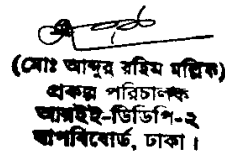 (মোঃ আব্দুর রহিম মল্লিক)
প্রকল্প পরিচালক
আরইই-ডিডিপি-২
বাপবিবোর্ড, ঢাকা।